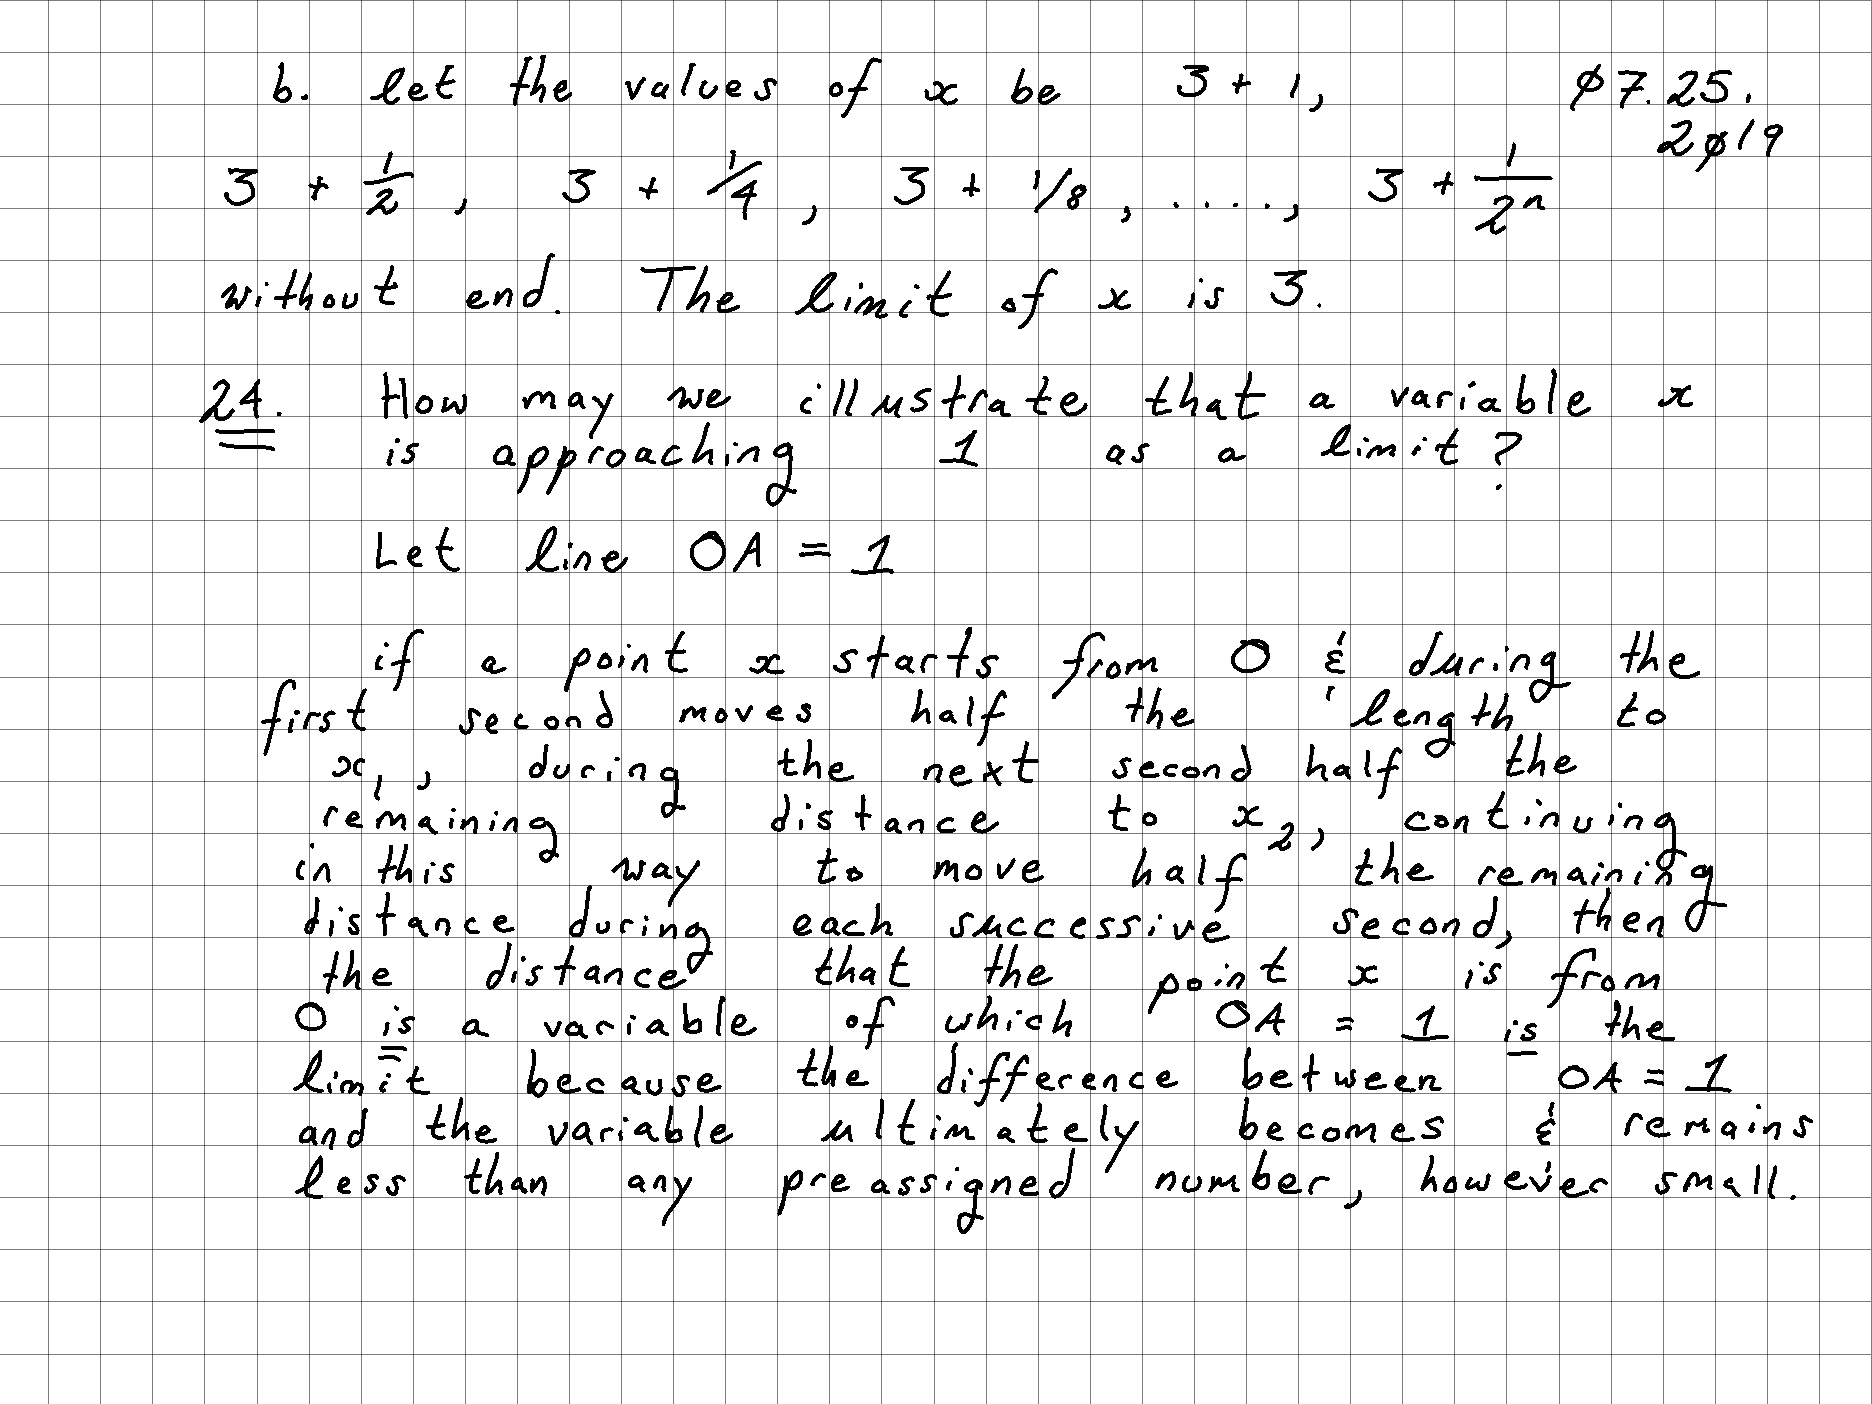 b. let the values of x be 3 + 1, Ø7.25.
2Ø19
3 + 1/2, 3 + 1/4, 3 + 1/8, ...., 3 + 1/2ⁿ
without end. The limit of x is 3.
24. How may we illustrate that a variable x
is approaching 1 as a limit?
Let line OA = 1
if a point x starts from O & during the
first second moves half the length to
x₁, during the next second half the
remaining distance to x₂, continuing
in this way to move half the remaining
distance during each successive second, then
the distance that the point x is from
O is a variable of which OA = 1 is the
limit because the difference between OA = 1
and the variable ultimately becomes & remains
less than any preassigned number, however small.